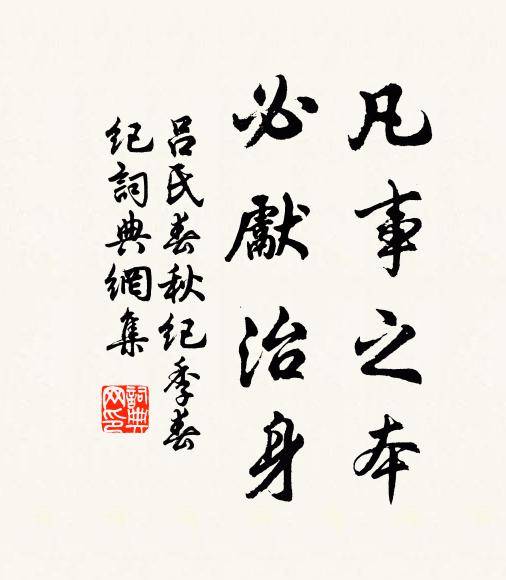 凡事之本
必獻治身
呂氏春秋紀季春
紀詞典網集
詞典
网印